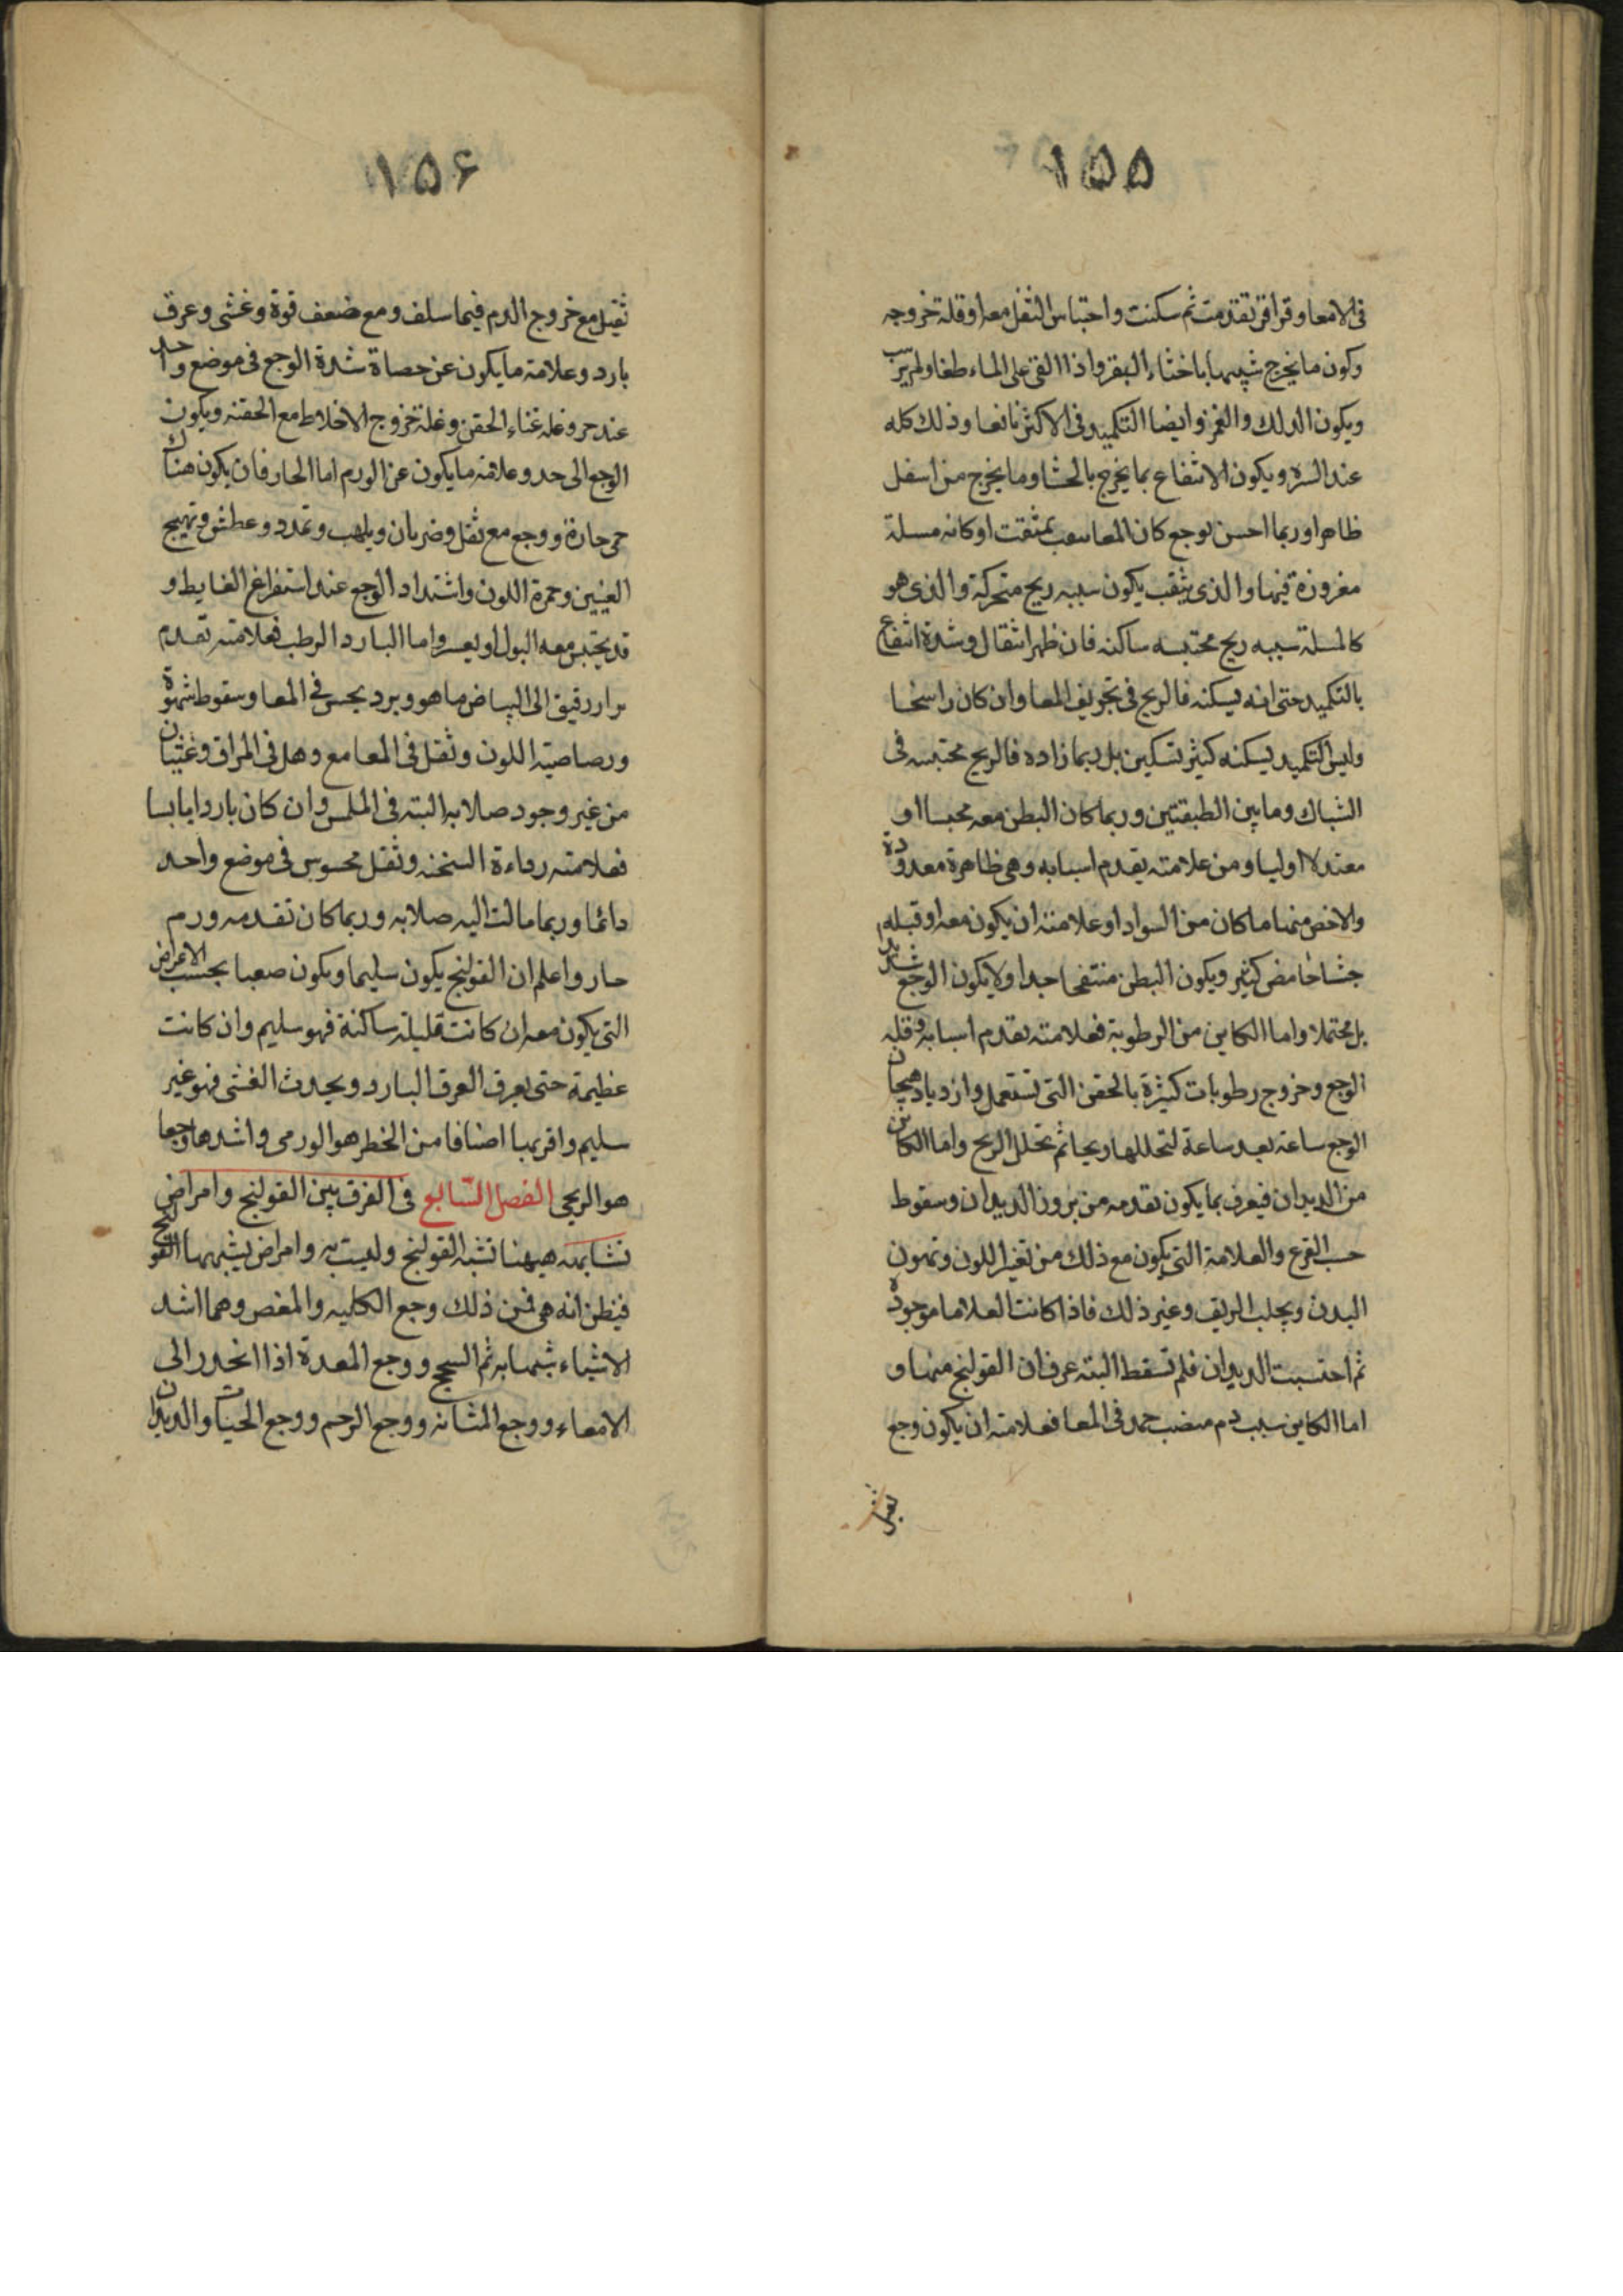 ١٥٥
فى الامعا وقراقر تقدمت ثم سكنت واحتباس الثفل معه او قلة خروجه
وكون ما يخرج شبيها باخثاء البقر واذا القى على الماء طفا ولم يرسب
ويكون الدلك والغمز وايضا التكميد فى الاكثر نافعا وذلك كله
عند السره ويكون الانتفاع بما يخرج بالحشا وما يخرج من اسفل
ظاهرا وربما احسن بوجع كان المعا بمثقت او كانه مسلة
مغروزة فيها والذى يثقب يكون سببه ريح متحركة والذى هو
كالمسلة سببه ريح محتبسه ساكنه فان ظهر انتقال وشدة انتفاع
بالتكميد حتى انه يسكنه فالريح فى تجويف المعا وان كان راسخا
وليس التكميد يسكنه كثير تسكين بل ربما زاده فالريح محتبسه فى
الشباك وما بين الطبقتين وربما كان البطن معه محبسا او
معتدلا اوليا ومن علامته يقدم اسبابه وهى ظاهرة معدودة
والاخص منها ما كان من السوادا وعلامته ان يكون معه او قبله
جشا حامض كثير ويكون البطن منتفخا جدا ولا يكون الوجع شديدا
بل محتملا واما الكاين من الرطوبة فعلامته يقدم اسبابه وقله
الوجع وخروج رطوبات كثيرة بالحقن التى تستعمل وازدياد هيجان
الوجع ساعة بعد ساعة لتحللها ريحا ثم تحلل الريح واما الكائن
من الديدان فيعرف بما يكون تقدمه من بروز الديدان وسقوط
حب القرع والعلامة التى يكون مع ذلك من تغير اللون وتهون
البدن ويجلب الريق وغير ذلك فاذا كانت العلاما موجودة
ثم احتسبت الديدان فلم تسقط البته عرف ان القولنج منها و
اما الكاين سبب دم منصب جمد فى المعا فعلامته ان يكون وجع
ثقيل
١٥۶
ثقيل مع خروج الدم فيما سلف ومع ضعف قوة وغشى وعرق
بارد وعلامة ما يكون عن حصاة شدة الوجع فى موضع واحد
عند حر وغله غناء الحقن وغلة خروج الاخلاط مع الحقنه ويكون
الوجع الى حد وعلامته ما يكون عن الورم اما الحار فان يكون هناك
حمى حارة ووجع مع ثقل وضربان ويلهب وتمدد وعطش وتهيج
العينين وحمرة اللون واشتداد الوجع عند استفراغ الغايط و
قد يحتبس معه البول او يعسر واما البارد الرطب فعلامته تقدم
براز رقيق الى البياض ما هو وبرد يحس فى المعا وسقوط شهوة
ورصاصية اللون وثقل فى المعا مع وهل فى المراق وغثيان
من غير وجود صلابه البته فى الملمس وان كان باردا يابسا
فعلامته رداءة السخنه وثقل محسوس فى موضع واحد
دائما وربما مالت اليه صلابه وربما كان تقدمه ورم
حار واعلم ان القولنج يكون سليما ويكون صعبا بحسب الاعراض
التى يكون معه ان كانت قليلة ساكنة فهو سليم وان كانت
عظيمة حتى يعرق العرق البارد ويحدث الغشى فهو غير
سليم واقربها اصنافا من الخطر هو الورمى واشدها وجعا
هو الريحى الفصل السابع فى الفرق بين القولنج وامراض
تشابهه هيهنا تشبه القولنج وليست به وامراض يشبهها القولنج
فيظن انه هى فمن ذلك وجع الكليه والمغص وهما اشد
الاشياء شبها به ثم السحج ووجع المعدة اذا انحدر الى
الامعاء ووجع المثانه ووجع الرحم ووجع الحيات والديدان